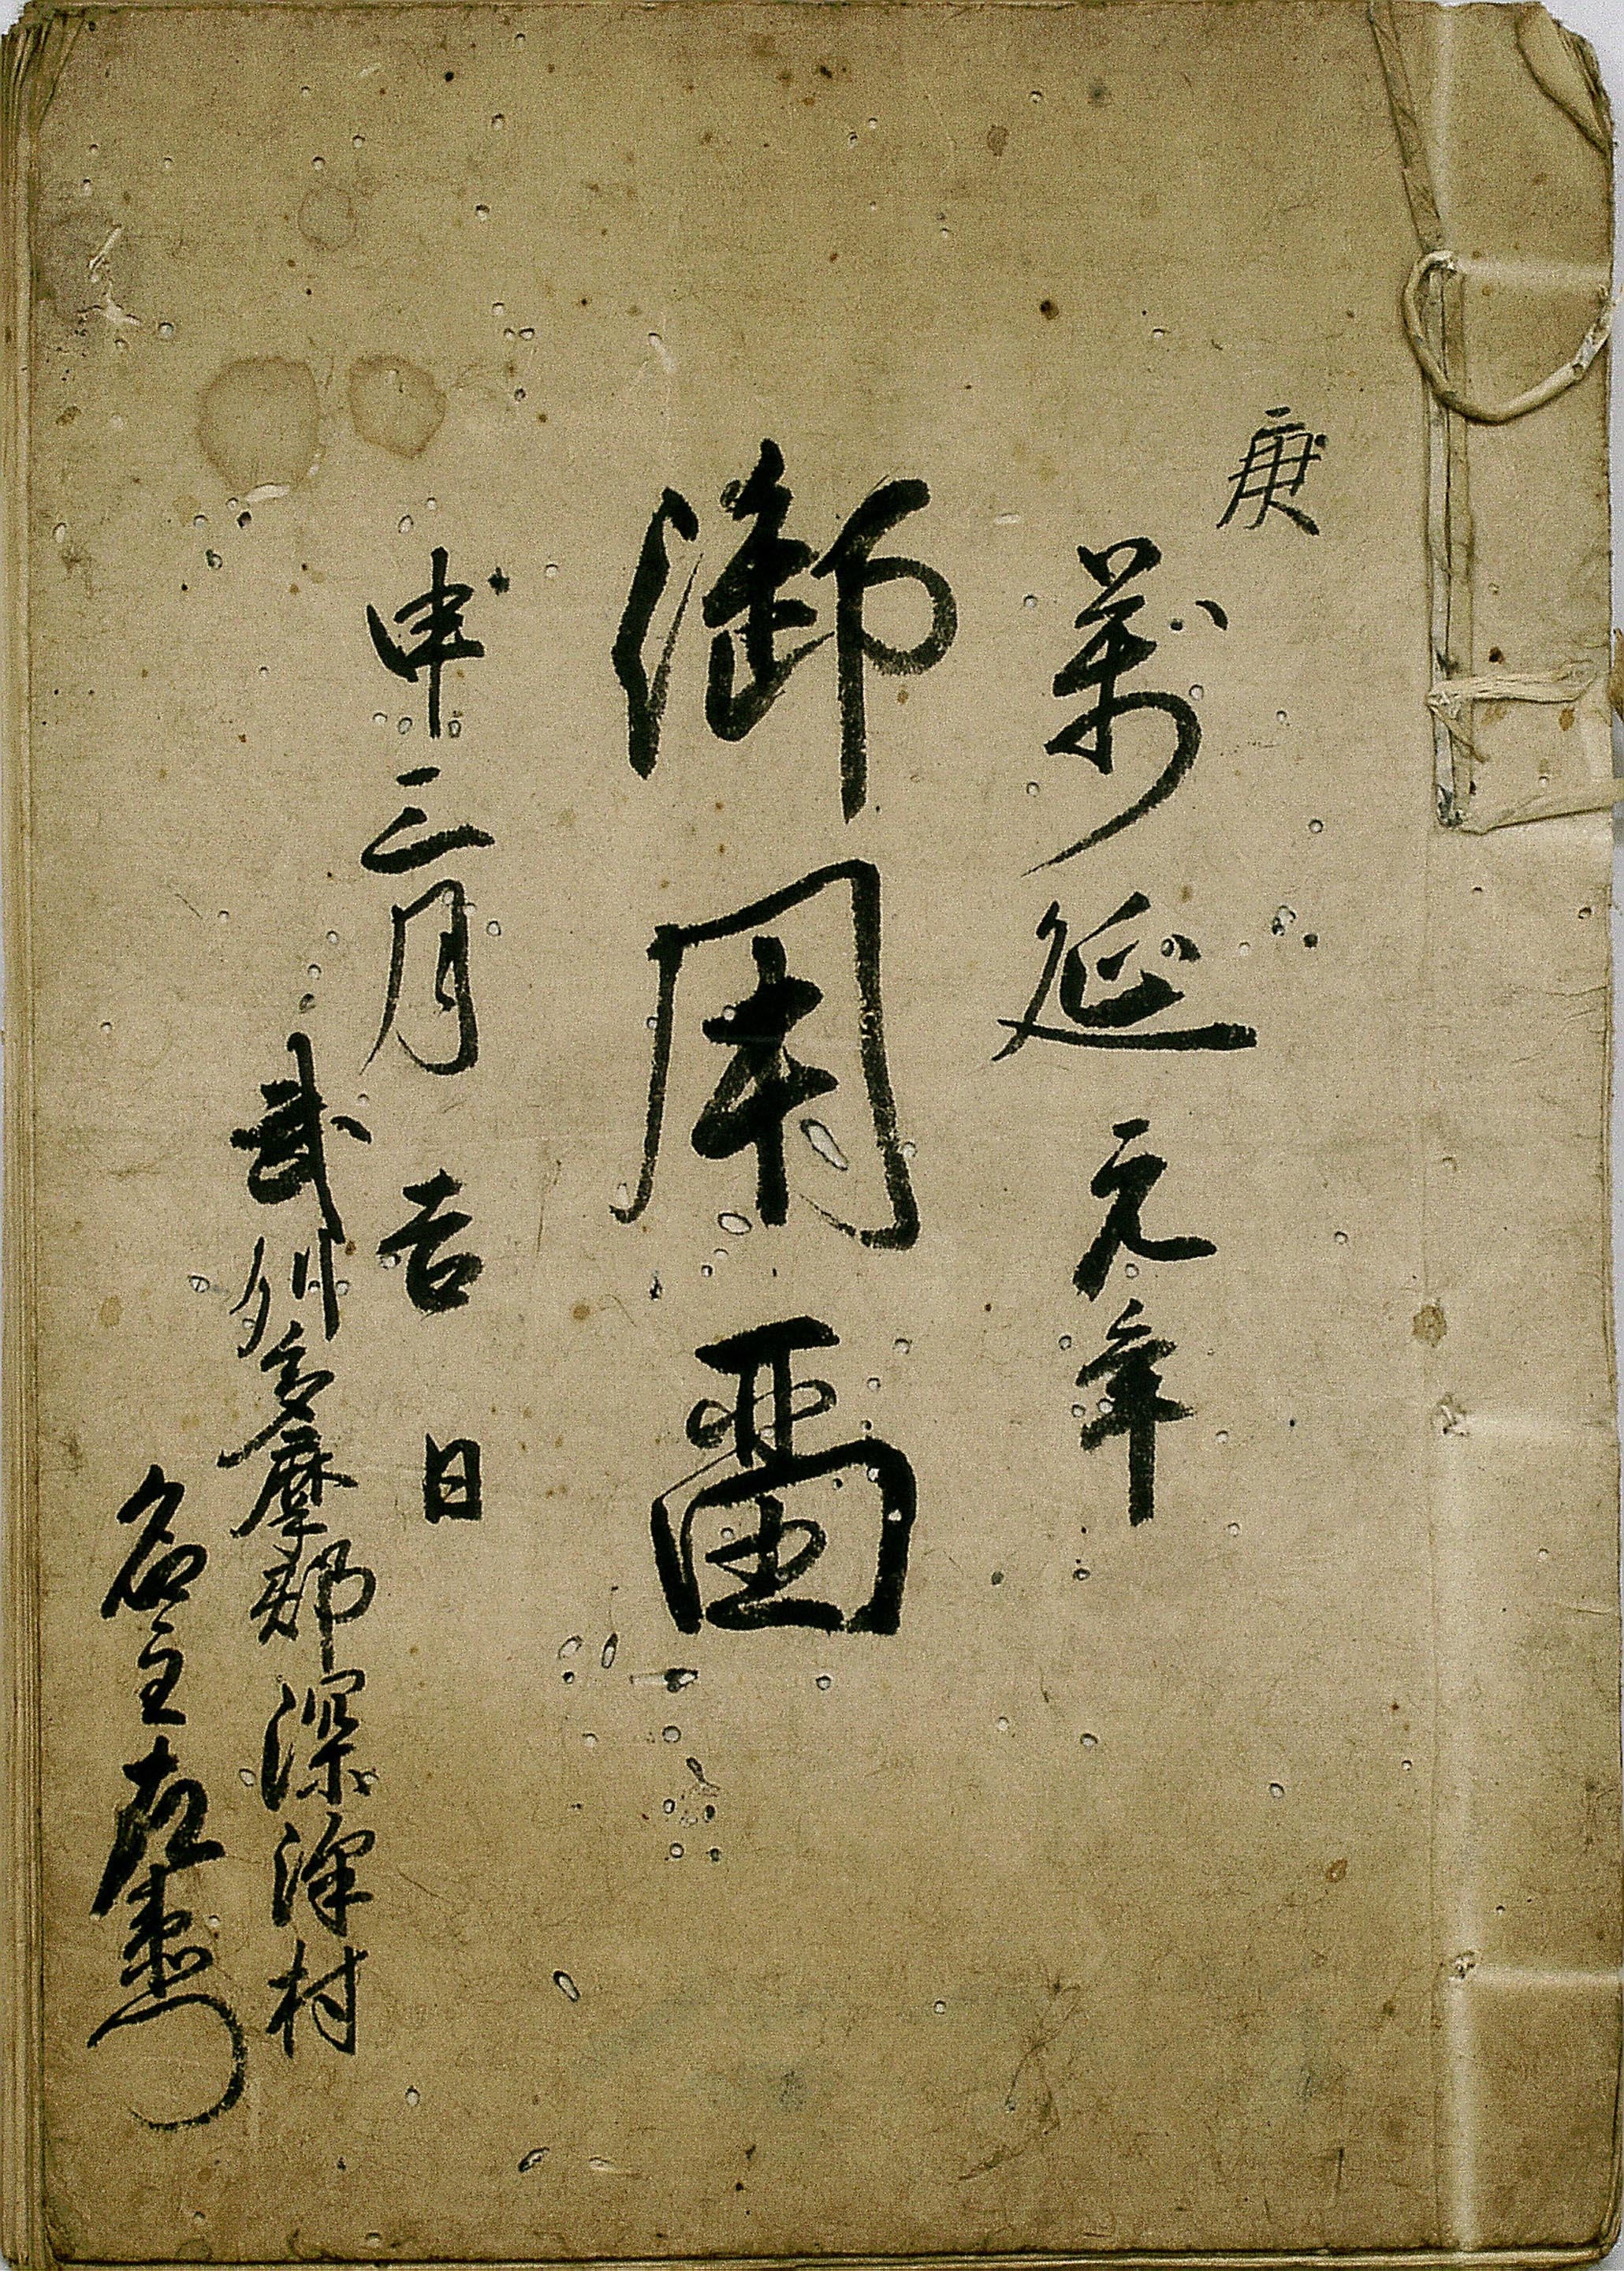 庚
萬延元年
御用畱
申三月吉日
武州多摩郡深澤村
名主